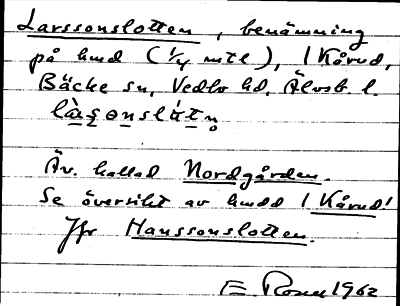 Larssonslotten, benämning
på hmd (1/4 mtl), 1 Kårud,
Bäcke sn, Vedbo hd, Älvsb. l.
Äv. kallad Nordgården.
Se översikt av hmdd 1 Kårud!
Jfr Hanssonslotten.
E Rosell 1962